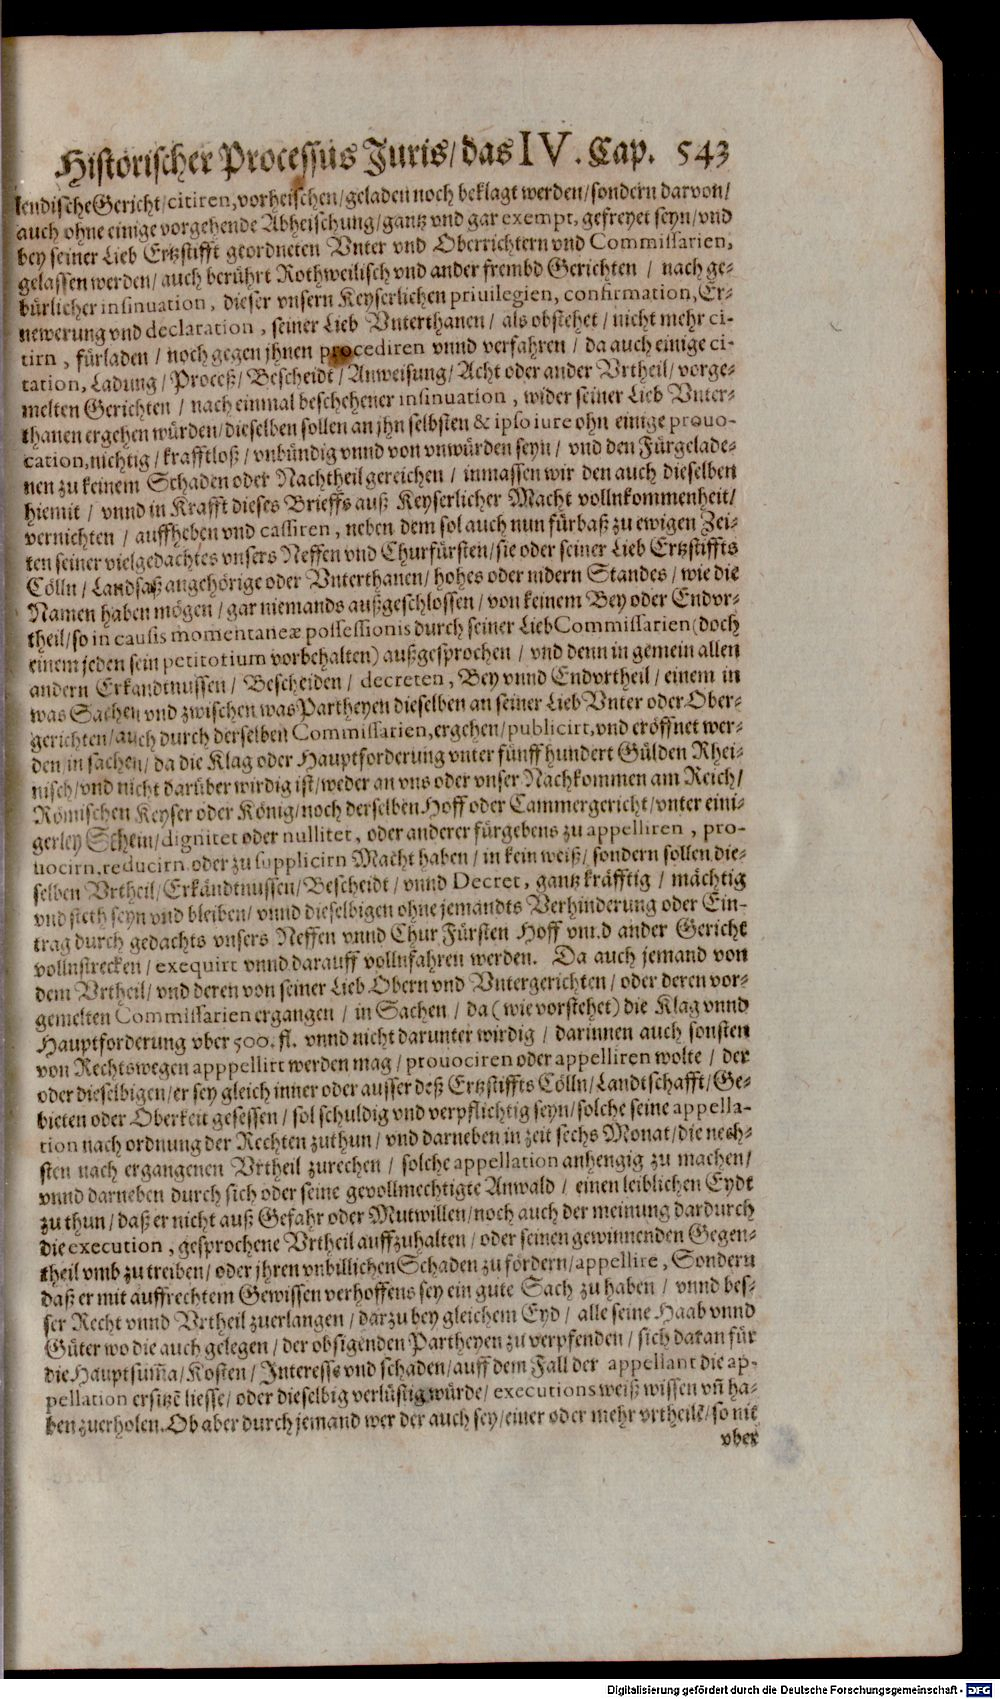 Historischer Processus Juris/ das IV. Cap. 543
lendische Gericht/ citiren, vorheischen/ geladen noch beklagt werden/ sondern darvon/
auch ohne einige vorgehende Abheischung/ gantz vnd gar exempt, gefreyet seyn/ vnd
bey seiner Lieb Ertzstifft geordneten Vnter vnd Oberrichtern vnd Commissarien,
gelassen werden/ auch berührt Rothweilisch vnd ander frembd Gerichten / nach ge-
bürlicher insinuation, dieser vnsern Keyserlichen priuilegien, confirmation, Er-
newerung vnd declaration, seiner Lieb Vnterthanen/ als obstehet/ nicht mehr ci-
tirn, fürladen / noch gegen jhnen procediren vnnd verfahren / da auch einige ci-
tation, Ladung/ Proceß/ Bescheidt / Anweisung/ Acht oder ander Vrtheil/ vorge-
melten Gerichten / nach einmal beschehener insinuation, wider seiner Lieb Vnter-
thanen ergehen würden/ dieselben sollen an jhn selbsten & ipso iure ohn einige prouo-
cation, nichtig / krafftloß / vnbündig vnnd von vnwürden seyn / vnd den Fürgelade-
nen zu keinem Schaden oder Nachtheil gereichen / inmassen wir den auch dieselben
hiemit / vnnd in Krafft dieses Brieffs auß Keyserlicher Macht vollnkommenheit/
vernichten / auffheben vnd cassiren, neben dem sol auch nun fürbaß zu ewigen Zei-
ten seiner vielgedachtes vnsers Neffen vnd Churfürsten/ sie oder seiner Lieb Ertzstiffts
Cölln / Landsaß angehörige oder Vnterthanen/ hohes oder nidern Standes / wie die
Namen haben mögen / gar niemands außgeschlossen / von keinem Bey oder Endvr-
theil/ so in causis momentaneæ possessionis durch seiner Lieb Commissarien (doch
einem jeden sein petitotium vorbehalten) außgesprochen / vnd denn in gemein allen
andern Erkandtnussen / Bescheiden / decreten, Bey vnnd Endvrtheil / einem in
was Sachen vnd zwischen was Partheyen dieselben an seiner Lieb Vnter oder Ober-
gerichten/ auch durch derselben Commissarien, ergehen/ publicirt, vnd eröffnet wer-
den/ in sachen/ da die Klag oder Hauptforderung vnter fünff hundert Gülden Rhei-
nisch/ vnd nicht darüber wirdig ist/ weder an vns oder vnser Nachkommen am Reich/
Römischen Keyser oder König/ noch derselben Hoff oder Cammergericht/ vnter eini-
gerley Schein/ dignitet oder nullitet, oder anderer fürgebens zu appelliren, pro-
uocirn, reducirn oder zu supplicirn Macht haben / in kein weiß/ sondern sollen die-
selben Vrtheil/ Erkändtnussen/ Bescheidt / vnnd Decret, gantz kräfftig / mächtig
vnd steth seyn vnd bleiben/ vnnd dieselbigen ohne jemandts Verhinderung oder Ein-
trag durch gedachts vnsers Neffen vnnd Chur Fürsten Hoff vnnd ander Gericht
vollnstrecken / exequirt vnnd darauff vollnfahren werden. Da auch jemand von
dem Vrtheil/ vnd deren von seiner Lieb Obern vnd Vntergerichten / oder deren vor-
gemelten Commissarien ergangen / in Sachen / da (wie vorstehet) die Klag vnnd
Hauptforderung vber 500. fl. vnnd nicht darunter wirdig / darinnen auch sonsten
von Rechtswegen apppellirt werden mag / prouociren oder appelliren wolte / der
oder dieselbigen/ er sey gleich inner oder ausser deß Ertzstiffts Cölln/ Landtschafft/ Ge-
bieten oder Oberkeit gesessen / sol schuldig vnd verpflichtig seyn/ solche seine appella-
tion nach ordnung der Rechten zuthun / vnd darneben in zeit sechs Monat/ die nech-
sten nach ergangenen Vrtheil zurechen / solche appellation anhengig zu machen/
vnnd darneben durch sich oder seine gevollmechtigte Anwald / einen leiblichen Eydt
zu thun / daß er nicht auß Gefahr oder Mutwillen/ noch auch der meinung dardurch
die execution, gesprochene Vrtheil auffzuhalten / oder seinen gewinnenden Gegen-
theil vmb zu treiben/ oder jhren vnbillichen Schaden zu fördern/ appellire, Sondern
daß er mit auffrechtem Gewissen verhoffens sey ein gute Sach zu haben / vnnd bes-
ser Recht vnnd Vrtheil zuerlangen / darzu bey gleichem Eyd / alle seine Haab vnnd
Güter wo die auch gelegen / der obsigenden Partheyen zu verpfenden / sich daran für
die Hauptsum̃a/ Kosten / Interesse vnd schaden/ auff dem Fall der appellant die ap-
pellation ersitzẽ liesse/ oder dieselbig verlüstig würde/ executions weiß wissen vñ ha-
ben zuerholen. Ob aber durch jemand wer der auch sey/ einer oder mehr vrtheilẽ/ so nit
vber
Digitalisierung gefördert durch die Deutsche Forschungsgemeinschaft - DFG